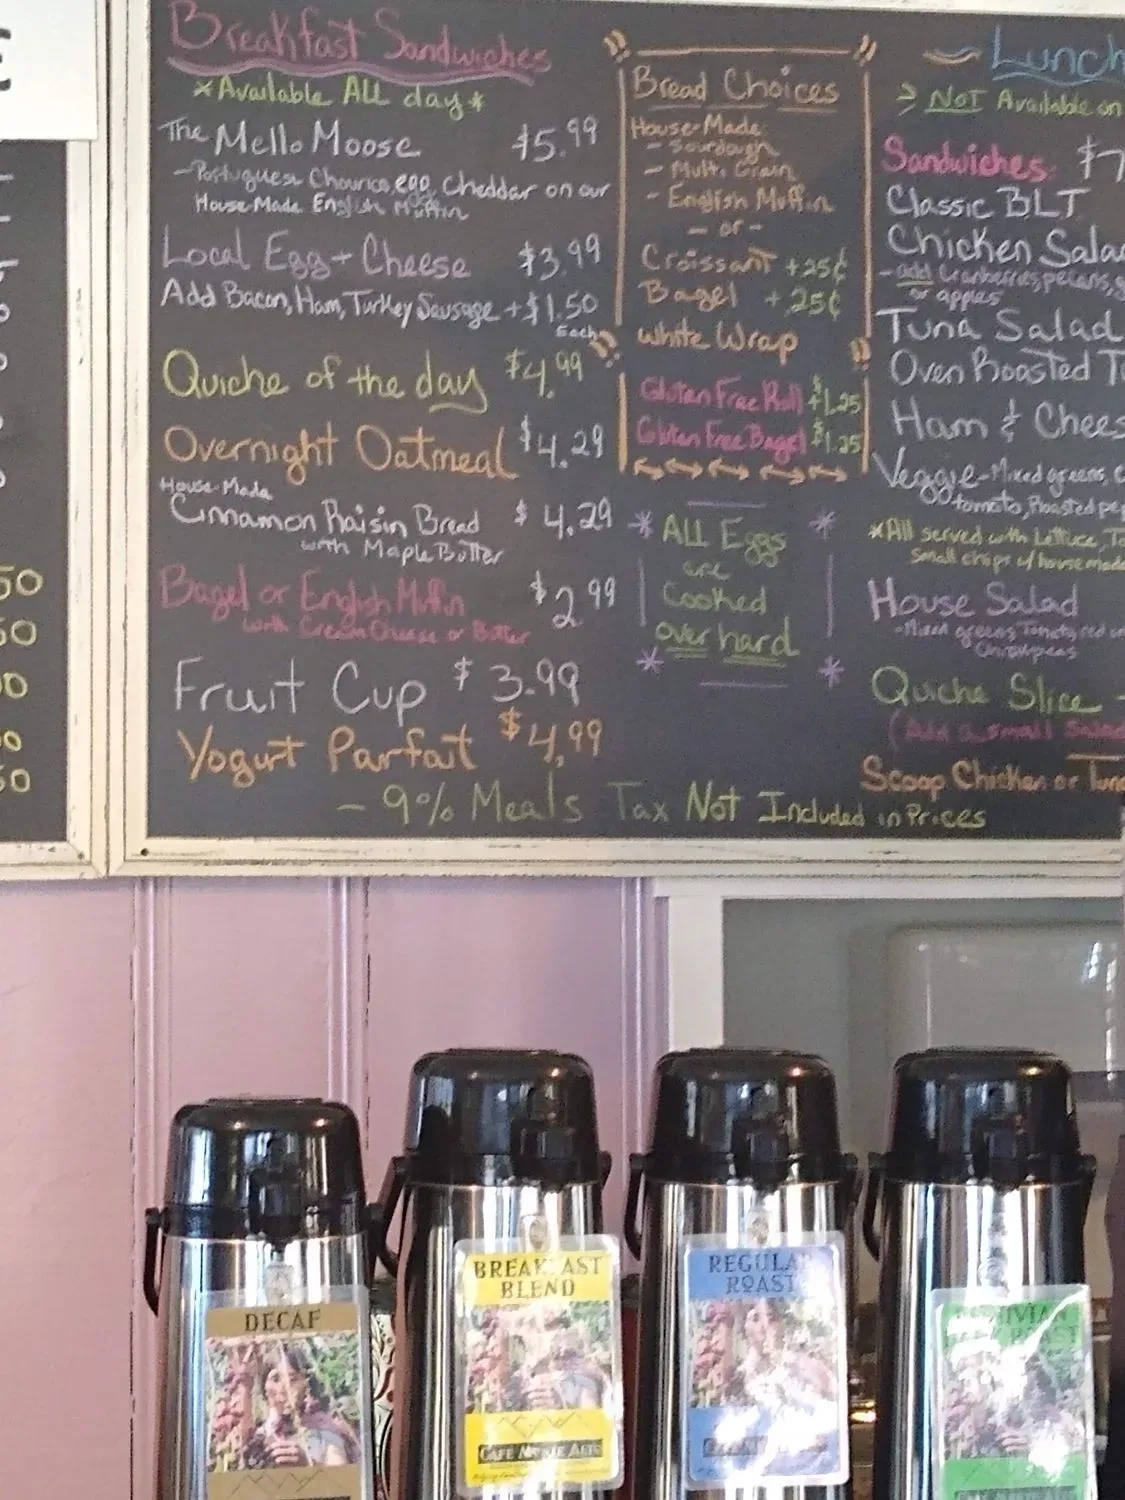 Breakfast Sandwiches
*Available ALL day*
The Mello Moose $5.99
-Portuguese Chourico, egg, Cheddar on our
House-Made English Muffin
Local Egg + Cheese $3.99
Add Bacon, Ham, Turkey Sausage +$1.50
Each
Quiche of the day $4.99
Overnight Oatmeal $4.29
House-Made
Cinnamon Raisin Bread $4.29
with Maple Butter
Bagel or English Muffin $2.99
with Cream Cheese or Butter
Fruit Cup $3.99
Yogurt Parfait $4.99
- 9% Meals Tax Not Included in Prices
Bread Choices
House-Made:
- Sourdough
- Multi Grain
- English Muffin
- or -
Croissant +25¢
Bagel +.25¢
White Wrap
Gluten Free Roll +$1.25
Gluten Free Bagel $1.25
ALL Eggs
are
Cooked
over hard
Lunch
NOT Available on
Sandwiches: $7
Classic BLT
Chicken Salad
-add Cranberries, pecans,
or apples
Tuna Salad
Oven Roasted
Ham & Chees
Veggie-Mixed greens,
tomato, Roasted
*All served with Lettuce,
small chips w/ house made
House Salad
-Mixed greens, red
Chickpeas
Quiche Slice -
(Add a small Salad
Scoop Chicken or Tuna
50
50
50
DECAF
BREAKFAST
BLEND
CAFE MONTE ALTO
REGULAR
ROAST